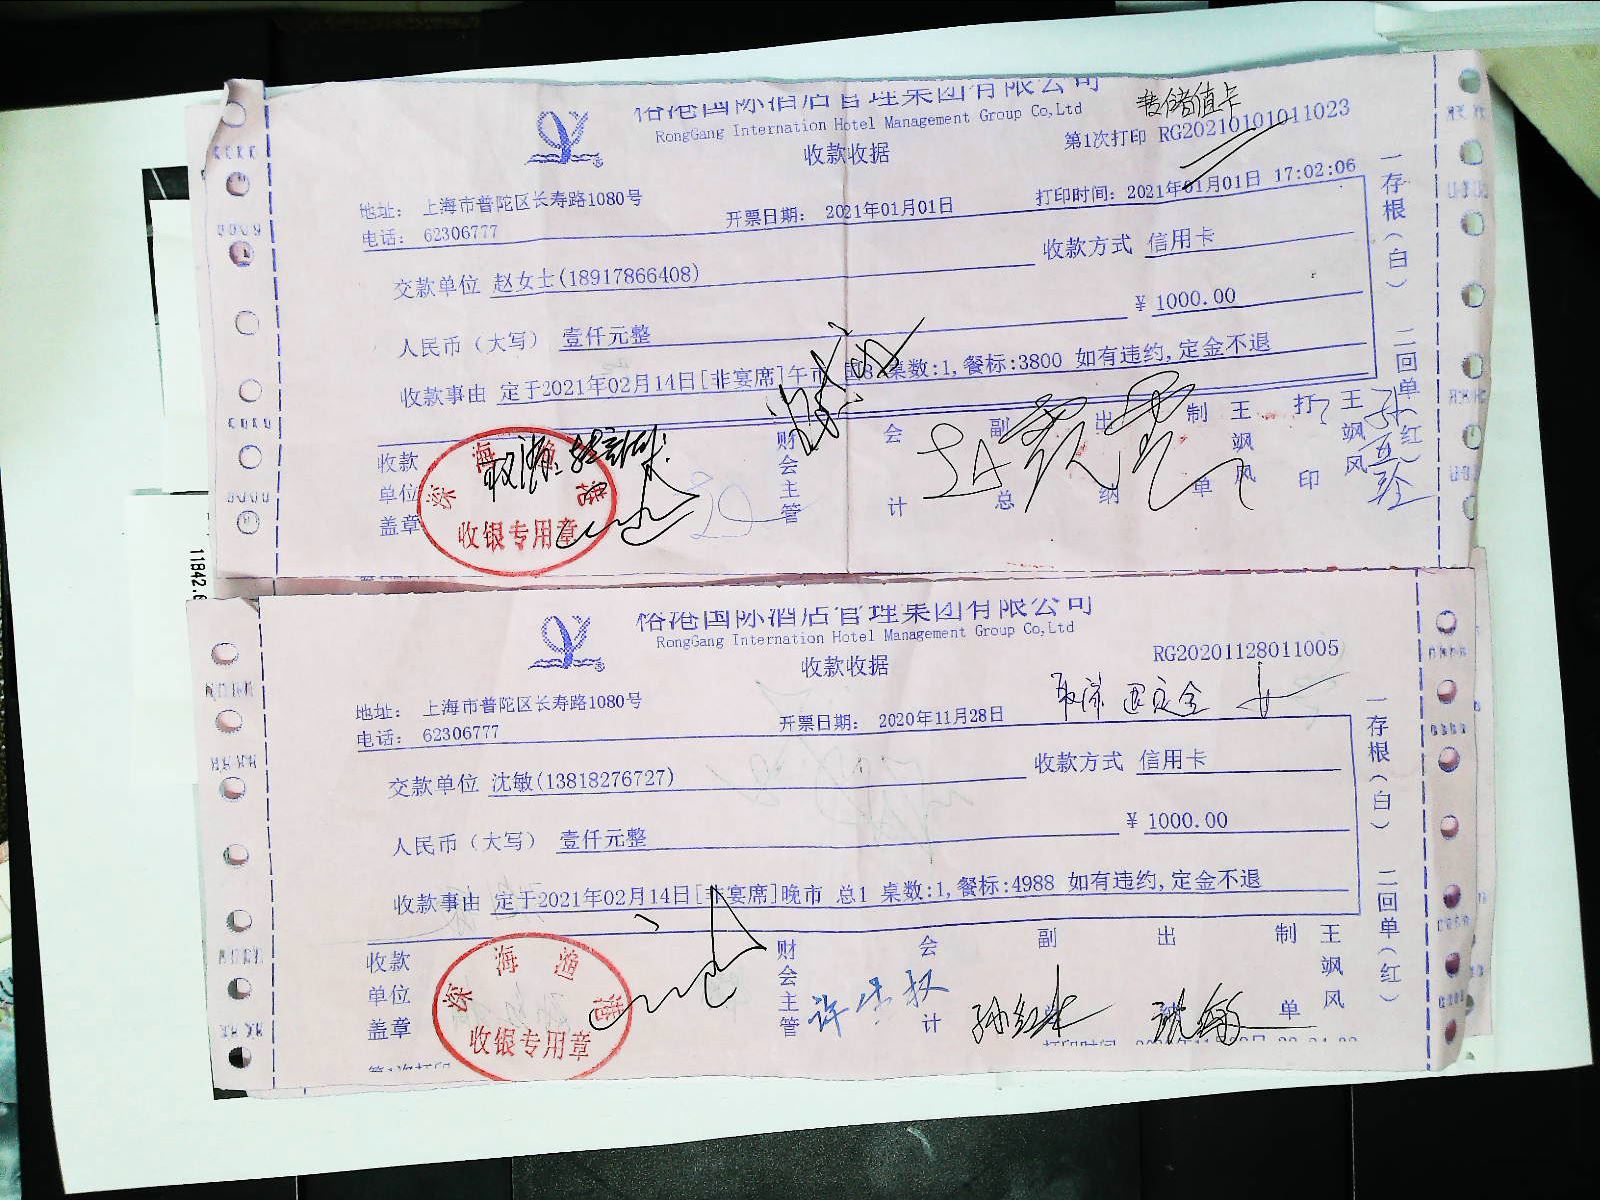 裕港国际酒店管理集团有限公司
RongGang Internation Hotel Management Group Co,Ltd
收款收据
售储值卡
第1次打印 RG20210101011023
地址: 上海市普陀区长寿路1080号
电话: 62306777
开票日期: 2021年01月01日
打印时间: 2021年01月01日 17:02:06
收款方式 信用卡
交款单位 赵女士(18917866408)
¥ 1000.00
人民币(大写) 壹仟元整
收款事由 定于2021年02月14日[非宴席]午市 国8 桌数:1,餐标:3800 如有违约,定金不退
收款单位盖章
深海渔港
收银专用章
财会主管
会计
副总
出纳
制单
王飒风
打印
王飒风
一存根(白) 二回单(红)
11842.6
裕港国际酒店管理集团有限公司
RongGang Internation Hotel Management Group Co,Ltd
收款收据
RG20201128011005
取消 退定金
地址: 上海市普陀区长寿路1080号
电话: 62306777
开票日期: 2020年11月28日
收款方式 信用卡
交款单位 沈敏(13818276727)
¥ 1000.00
人民币(大写) 壹仟元整
收款事由 定于2021年02月14日[非宴席]晚市 总1 桌数:1,餐标:4988 如有违约,定金不退
收款单位盖章
深海渔港
收银专用章
财会主管
会计
副
出
制单
王飒风
沈敏
第1次打印
打印时间
一存根(白) 二回单(红)